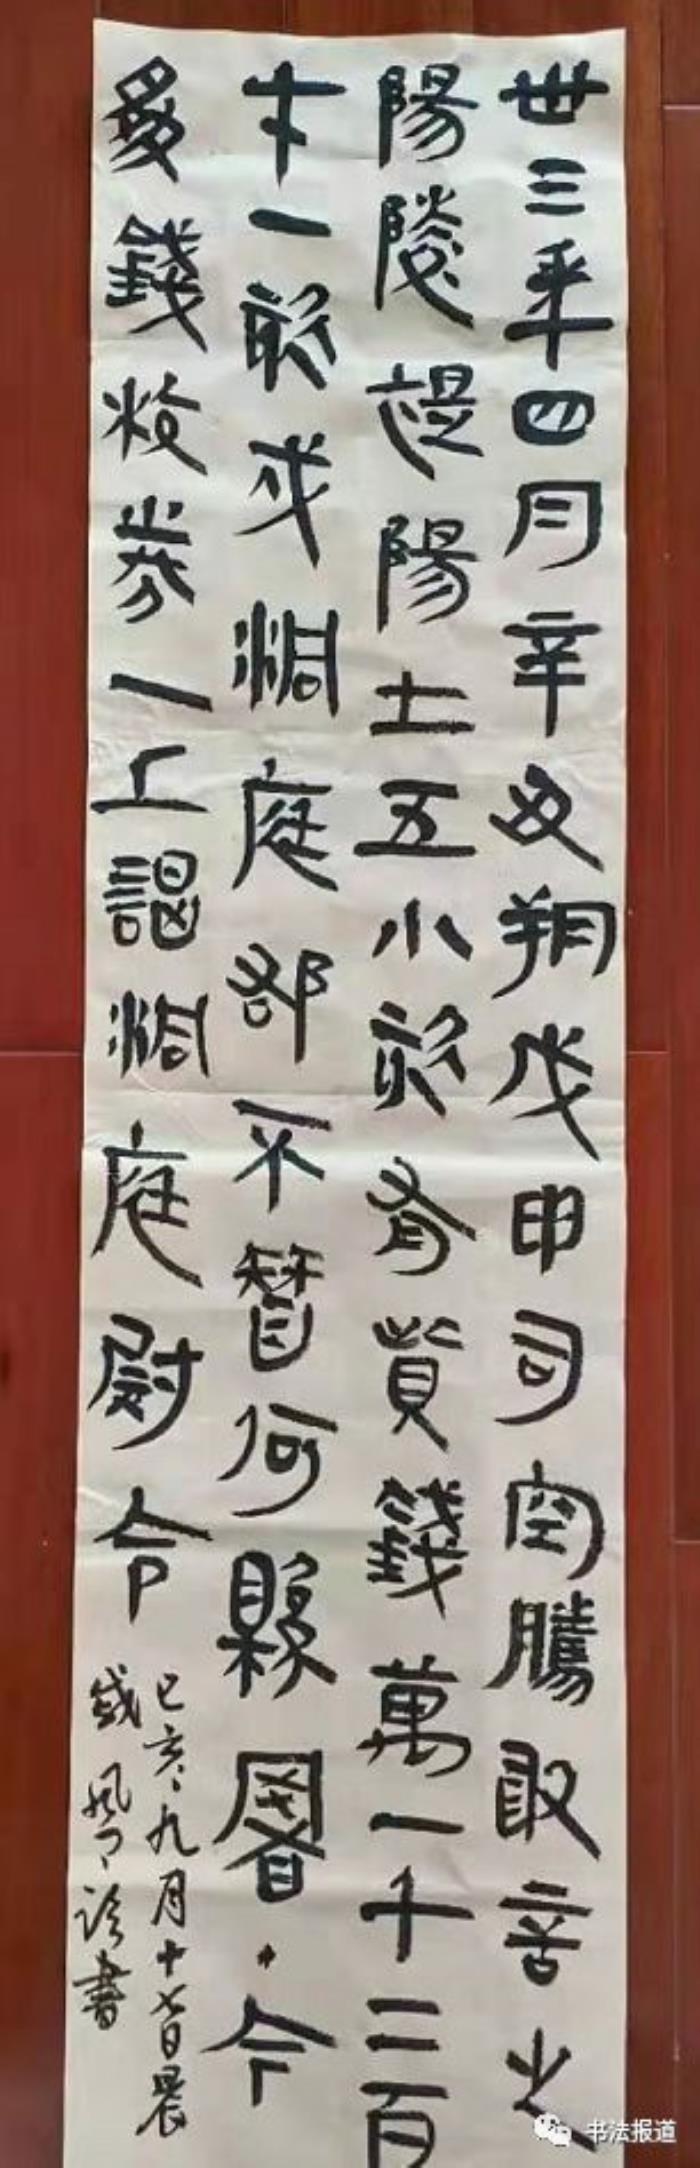 卅三年四月辛丑朔戊申司空騰敢言之
陽陵褆陽士五小欬有貲錢萬一千二百
七十一欬戍洞庭郡不智何縣署·今
為錢校券一上謁洞庭尉令
己亥九月十七日晨
風 書
书法报道